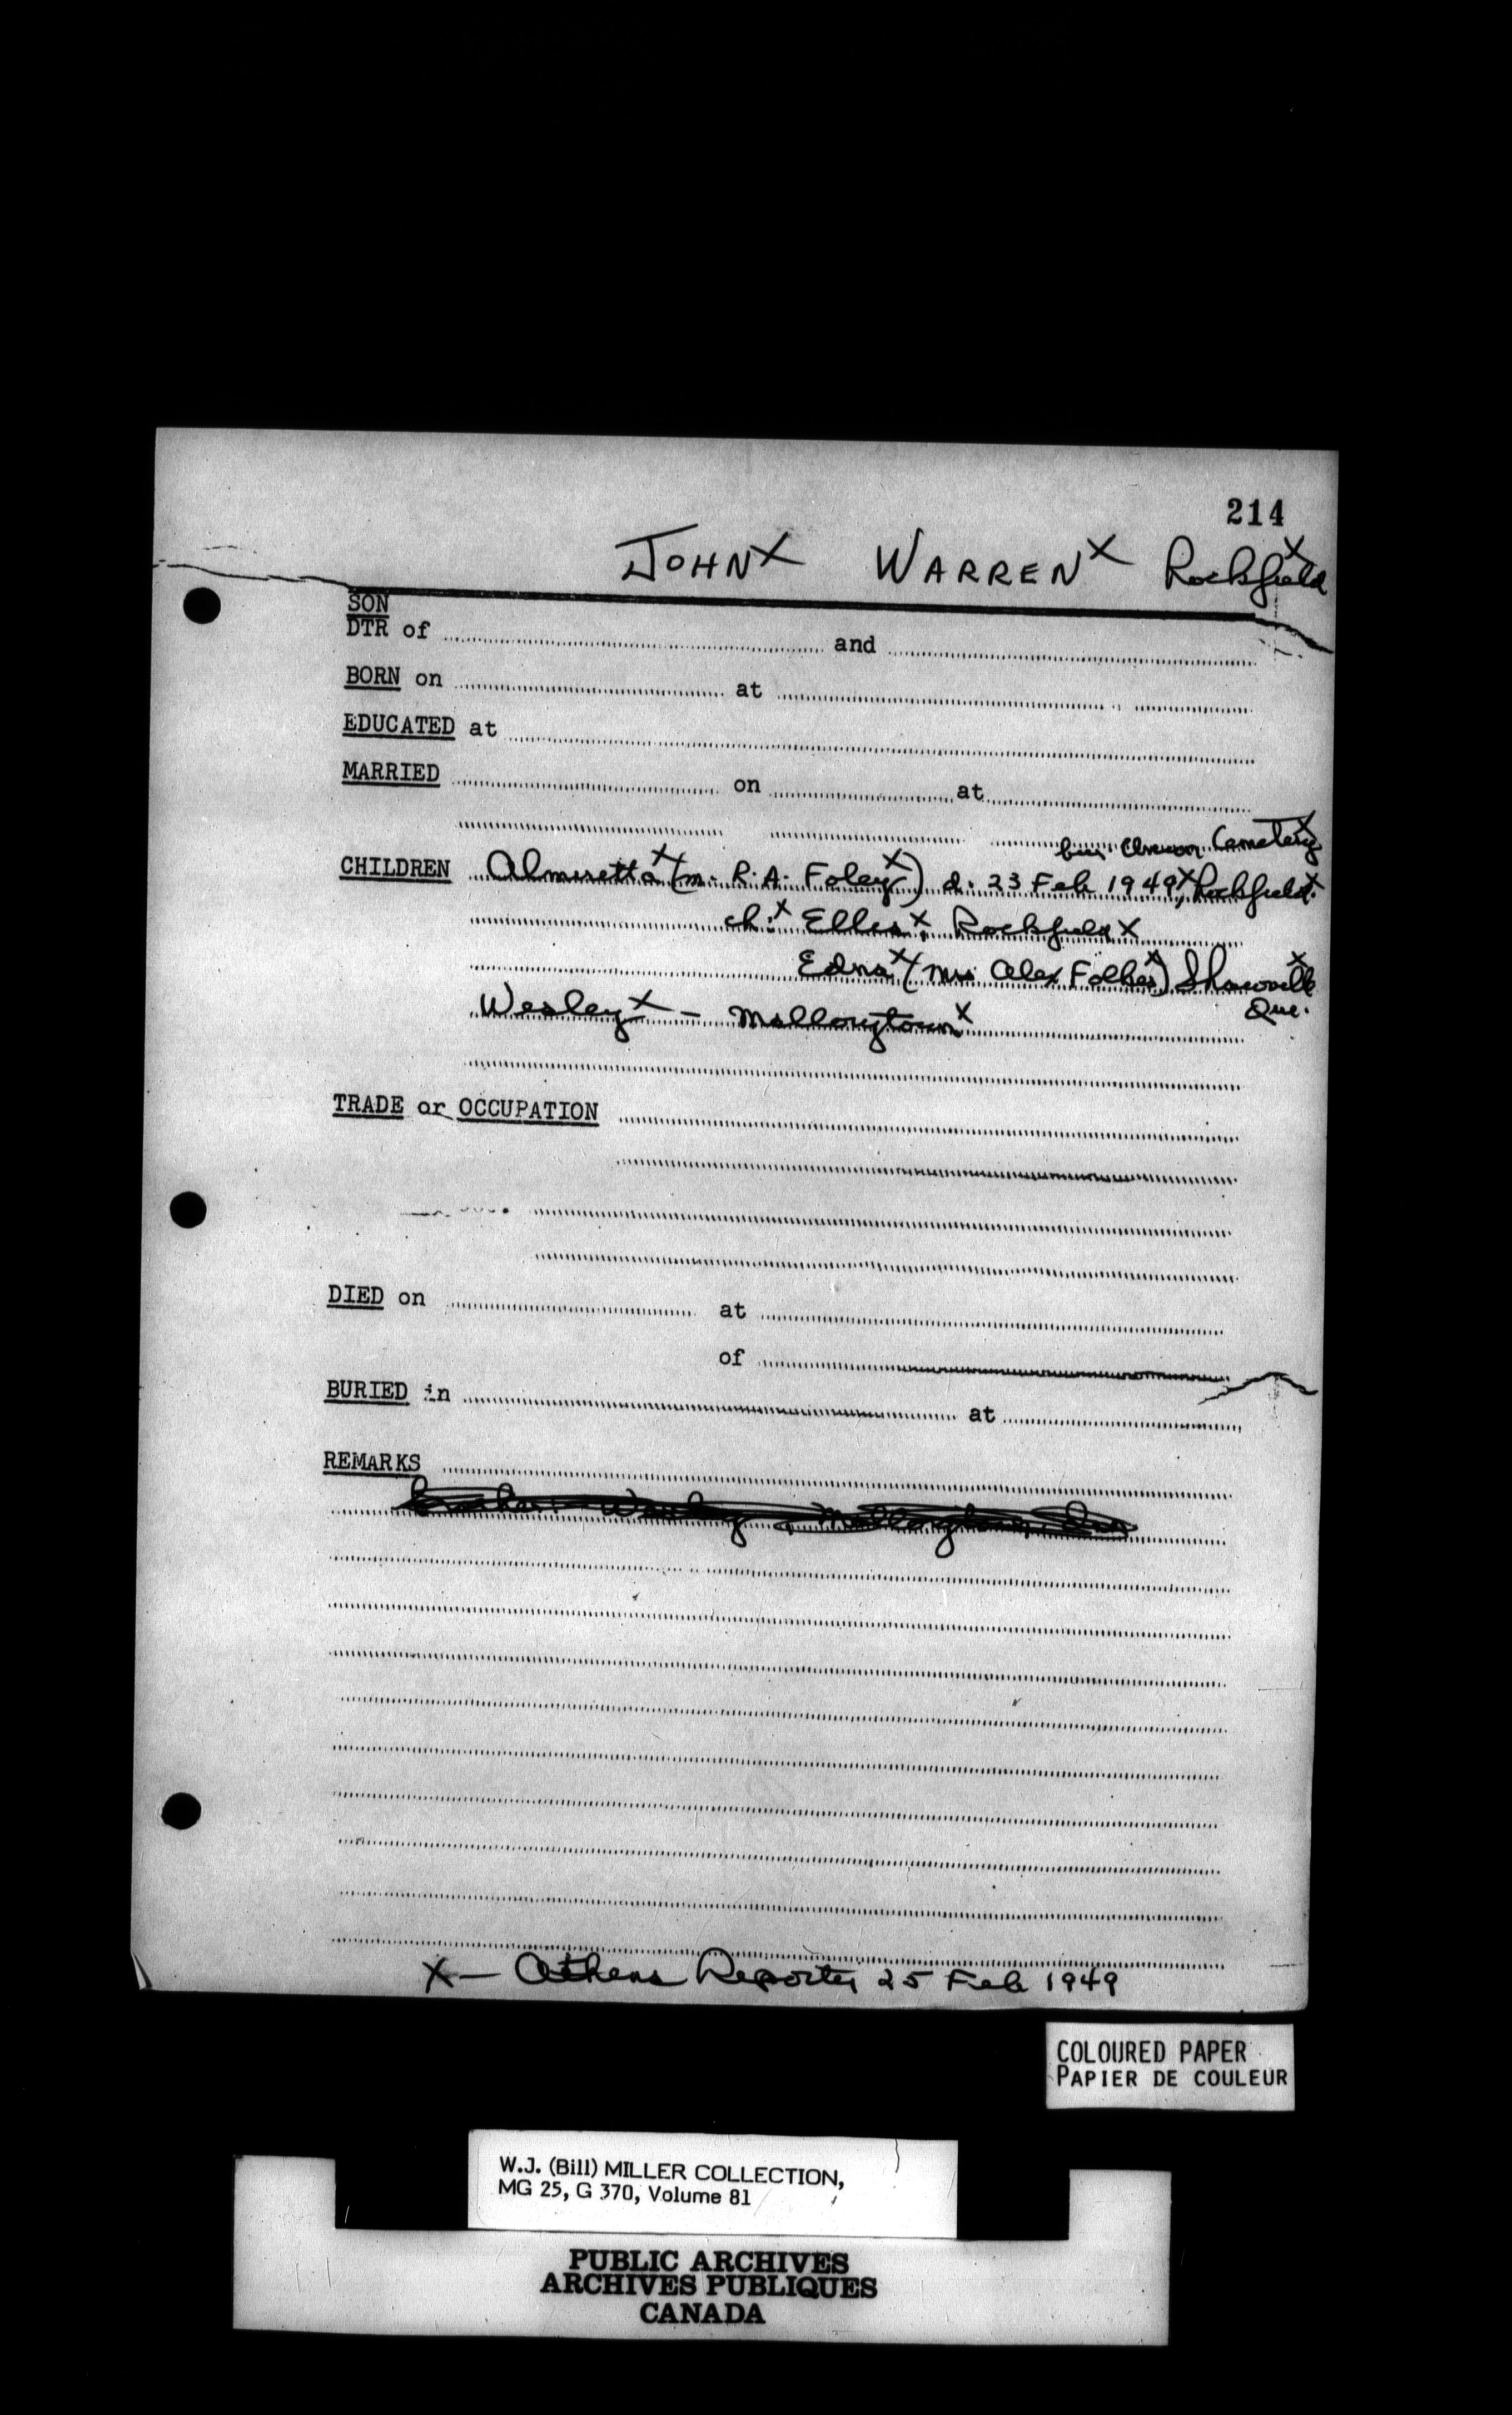 214
JOHN X WARREN X Rockfield X
SON
DTR of and
BORN on at
EDUCATED at
MARRIED on at
bur. Cemetery X
CHILDREN Almuretta X (m. R.A. Foley X) d. 23 Feb 1949 X, Rockfield X.
ch: X Elles X, Rockfield X
Edna X (Mrs Alex Folkes X) Shawville X
Que.
Wesley X - Mallorytown X
TRADE or OCCUPATION
DIED on at
of
BURIED in at
REMARKS
X - Athens Reporter 25 Feb 1949
COLOURED PAPER
PAPIER DE COULEUR
W.J. (Bill) MILLER COLLECTION,
MG 25, G 370, Volume 81
PUBLIC ARCHIVES
ARCHIVES PUBLIQUES
CANADA